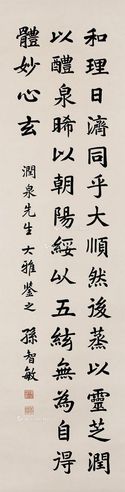 和理日濟同乎大順然後蒸以靈芝潤
以醴泉晞以朝陽綏以五絃無為自得
體妙心玄
潤泉先生大雅鑒之 孫智敏